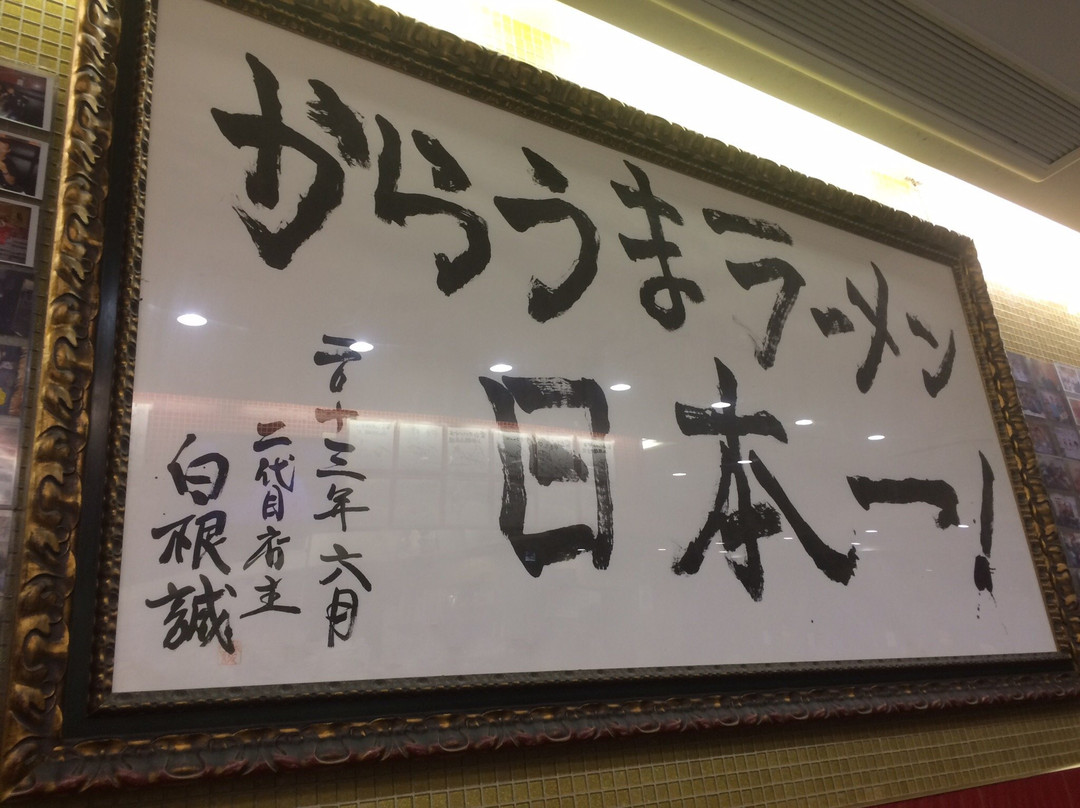 からうまラーメン
日本一!
二〇十三年六月
二代目店主
白根誠